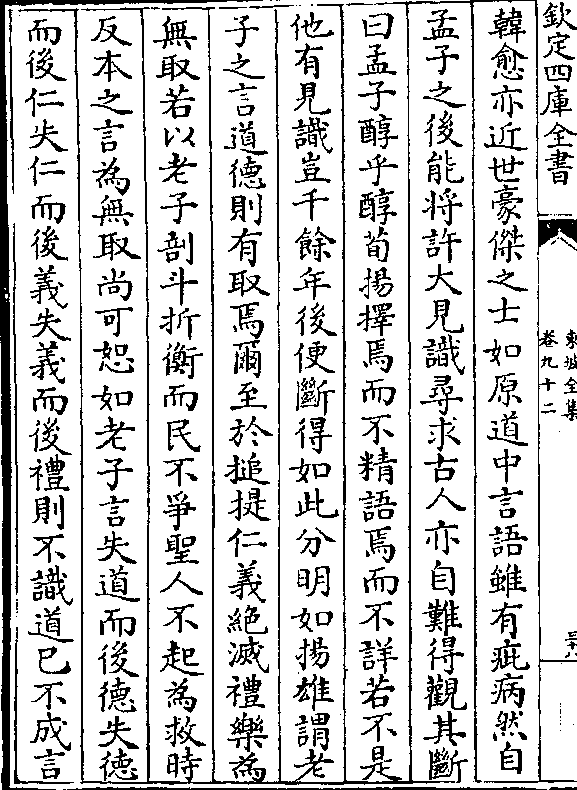 欽定四庫全書
東坡全集
卷九十二
韓愈亦近世豪傑之士如原道中言語雖有疵病然自
孟子之後能將許大見識尋求古人亦自難得觀其斷
曰孟子醇乎醇荀揚擇焉而不精語焉而不詳若不是
他有見識豈千餘年後便斷得如此分明如揚雄謂老
子之言道德則有取焉爾至於搥提仁義絕滅禮樂為
無取若以老子剖斗折衡而民不爭聖人不起為救時
反本之言為無取尚可恕如老子言失道而後德失德
而後仁失仁而後義失義而後禮則不識道已不成言